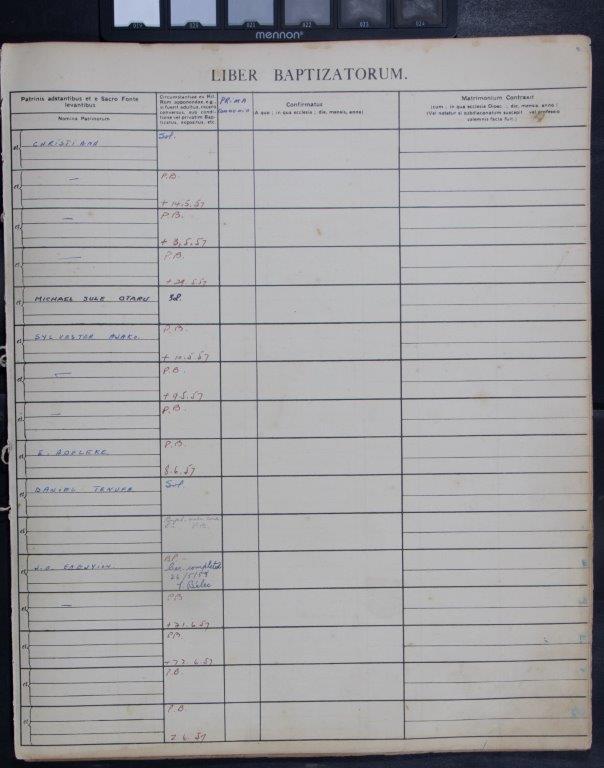 mennon
LIBER BAPTIZATORUM.
Patrinis adstantibus et e Sacro Fonte levantibus
Nomina Patrinorum
Circumstantiae ex Rit. Rom. apponendae, e.g., si fuerit adultus, recens conversus, sub conditione vel privatim Baptizatus, expositus, etc.
PRIMA COMMUNIO
Confirmatus
A quo ; in qua ecclesia ; die, mensis, anno)
Matrimonium Contraxit
(cum ; in qua ecclesia Dioec. ; die, mensis, anno)
(Vel notetur si subdiaconatum suscepit vel professio solemnis facta fuit.)
CHRISTIANA Sol.
— P.B.
+ 14.5.57
— P.B.
+ 8.5.57
— P.B.
5.57
MICHAEL SULE OTARU Sol.
SYLVESTER AJAKO. P.B.
+ 10.5.57
— P.B.
+ 9.5.57
— P.B.
E. ADELEKE P.B.
8.6.57
DANIEL Sol.
P.B.
BP.
Cer. completed
26/5/58
— P.B.
+ 21.6.57
P.B.
6.57
P.B.
P.B.
2 6.57